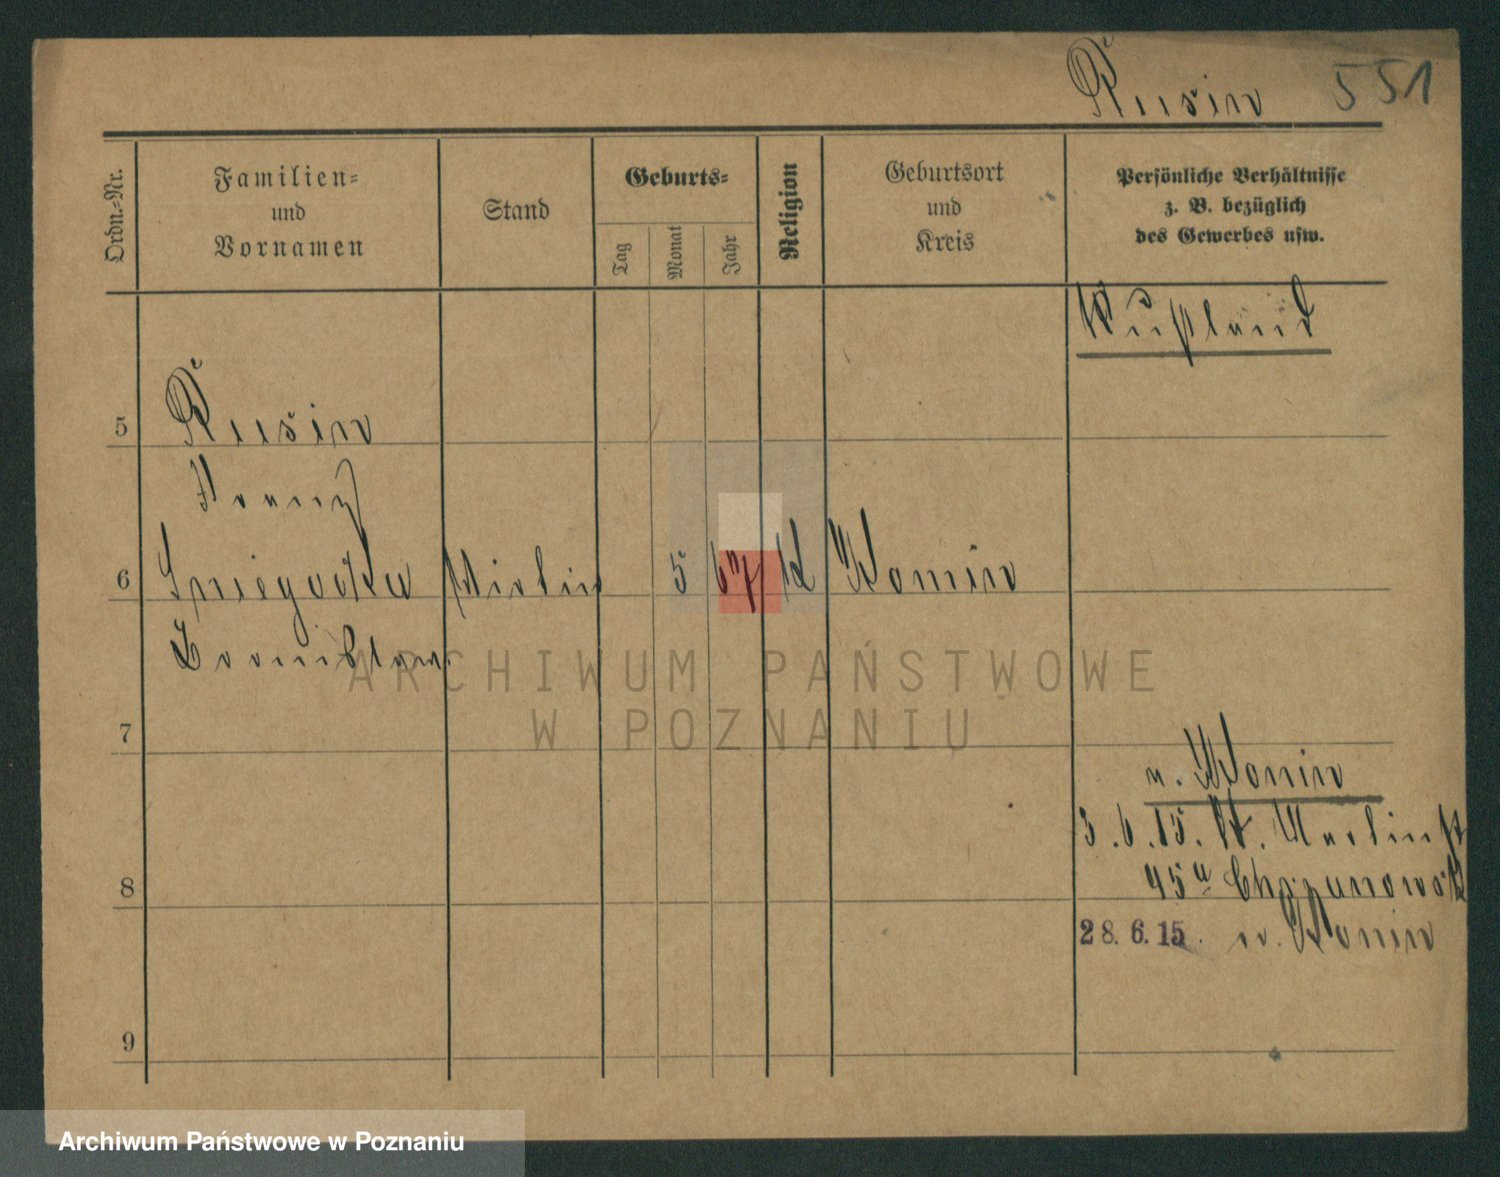 Rusin 551
Ordn.-Nr.
Familien-
und
Vornamen
Stand
Geburts-
Tag
Monat
Jahr
Religion
Geburtsort
und
Kreis
Persönliche Verhältnisse
z. B. bezüglich
des Gewerbes usw.
Rußland
5
Rusin
Franz
6
Sniegocka Wirtin 5 67 K Konin
7
n. Konin
3.6.15. St. Martinst
45
8
28. 6. 15. n. Konin
9
ARCHIWUM PAŃSTWOWE
W POZNANIU
Archiwum Państwowe w Poznaniu